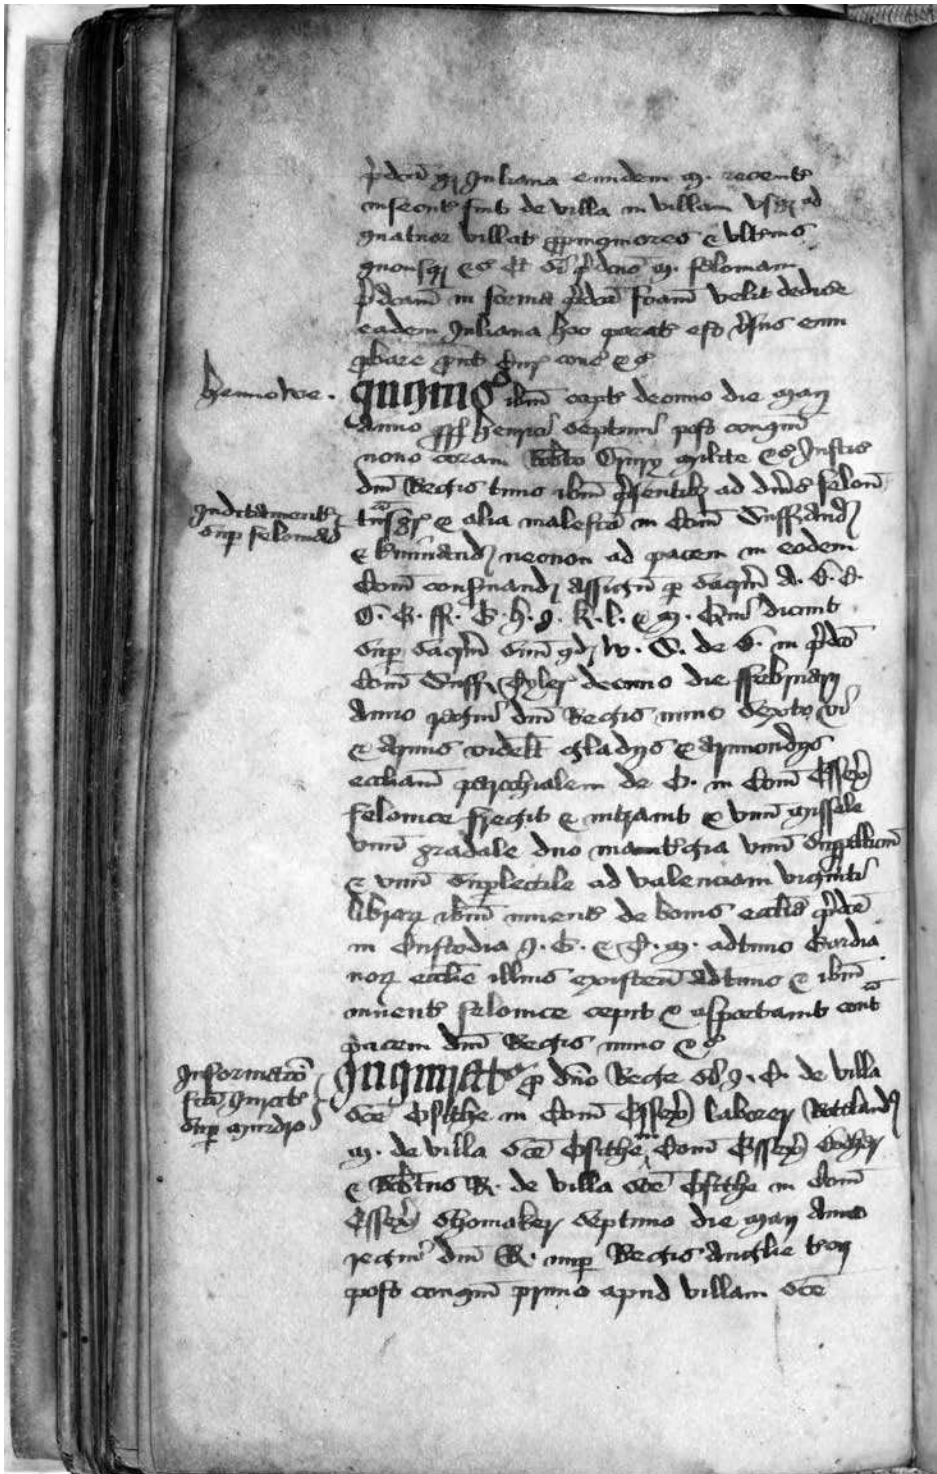 p'dcã qd Juliana eundem M. recent'
insecut' fuit de villa in villam usq ad
quatuor villat' ppinquiores & ult'ius
quousq &c Et si p'dcus M. feloniam
p'dcam in forma p'dca fcam velit dedic'e
eadem Juliana hoc parat' est v'sus eum
p'bare put Cur' cons' &c
Hennowe.
Inquis' ibm capt' decimo die Maij
Anno RR Henrici septimi post conqm
nono coram Rob'to Drury milite &c Justic'
dni Regis tunc ibm p'sentib; ad div'as felon'
Inditament'
sup felonia
t'nsgr' & alia malefca in Com Suff' audiend
& t'minand necnon ad pacem in eodem
Com conservand assign p sacrm A. B. C.
D. E. ff. G. H. J. K. L. & M. Qui dicunt
sup sacrm suu qd W. S. de S. in p'dco
Com Suff' Tyler decimo die ffebruarij
Anno regni dni Regis nunc sexto vi
& armis videlt gladijs &
eccliam parochialem de B. in Com Essex'
felonice fregit & intravit & unu missale
unu gradale duo unu suppellicm
& unu suplectile ad valenciam viginti
librar' ibm invent' de bonis ecclie p'dce
in Custodia J. B. & T. M. adtunc Gardia
nor' ecclie illius existen adtunc & ibm
invent' felonice cepit & asportavit cont'
pacem dni Regis nunc &c
Informaco
fca p Jurat'
sup murdro
Inquirat' p dno Rege si J. C. de villa
sce Osithe in Com Essex' laborer
M. de villa sce Osithe in Com Essex'
& Rob'tus R. de villa sce Osithe in Com
Essex' Shomaker septimo die Maij Anno
regni dni R. nup Regis Anglie t'cij
post conqm primo apud villam sce